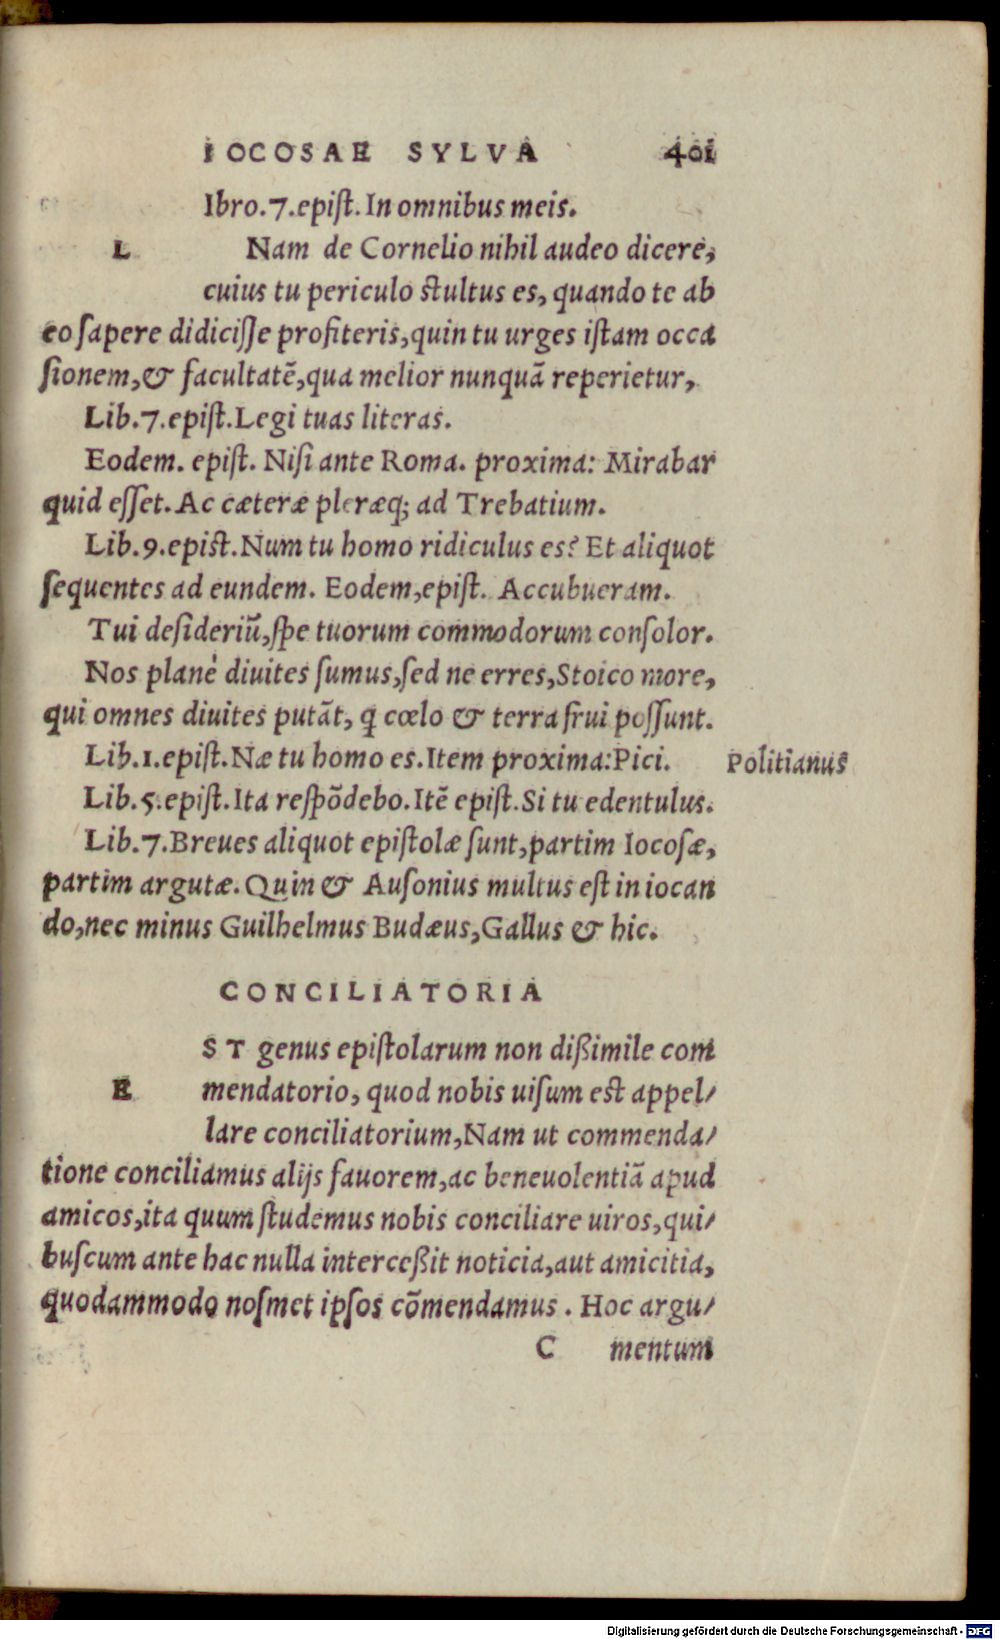 IOCOSAE SYLVA 401
Ibro.7.epiſt.In omnibus meis.
L Nam de Cornelio nihil audeo dicere,
cuius tu periculo ſtultus es, quando te ab
eo ſapere didiciſſe profiteris,quin tu urges iſtam occa
ſionem,& facultatẽ,qua melior nunquã reperietur,
Lib.7.epiſt.Legi tuas literas.
Eodem. epiſt. Niſi ante Roma. proxima: Mirabar
quid eſſet. Ac cæteræ pleræq; ad Trebatium.
Lib.9.epiſt.Num tu homo ridiculus es? Et aliquot
ſequentes ad eundem. Eodem,epiſt. Accubueram.
Tui deſideriũ,ſpe tuorum commodorum conſolor.
Nos planè diuites ſumus,ſed ne erres,Stoico more,
qui omnes diuites putãt, ꝗ cœlo & terra frui poſſunt.
Lib.1.epiſt.Næ tu homo es.Item proxima:Pici.
Politianus
Lib.5.epiſt.Ita reſpõdebo.Itẽ epiſt.Si tu edentulus.
Lib.7.Breues aliquot epiſtolæ ſunt,partim Iocoſæ,
partim argutæ. Quin & Auſonius multus eſt in iocan
do,nec minus Guilhelmus Budæus,Gallus & hic.
CONCILIATORIA
ST genus epiſtolarum non dißimile com
E mendatorio, quod nobis uiſum eſt appel/
lare conciliatorium,Nam ut commenda/
tione conciliamus alijs fauorem,ac beneuolentiã apud
amicos,ita quum ſtudemus nobis conciliare uiros,qui/
buſcum ante hac nulla interceßit noticia,aut amicitia,
quodammodo noſmet ipſos cõmendamus. Hoc argu/
C mentum
Digitalisierung gefördert durch die Deutsche Forschungsgemeinschaft - DFG